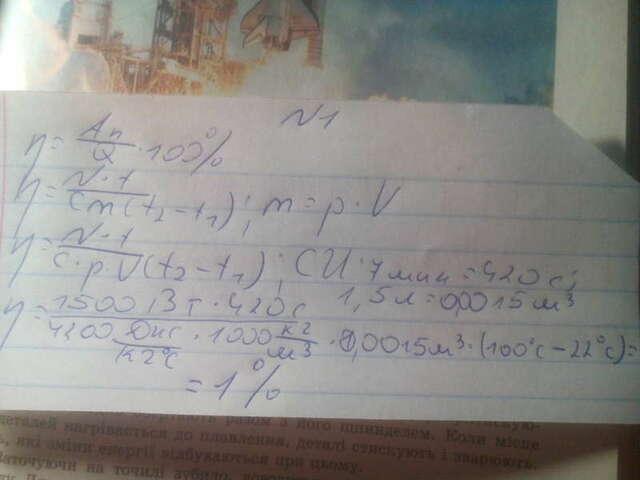 N1
η = Aп/Q · 100%
η = N·t/cm(t₂-t₁); m = ρ·V
η = N·t/c·ρ·V(t₂-t₁); СИ: 7 мин = 420 с;
1,5 л = 0,0015 м³
η = 1500 Вт · 420 с/4200 Дж/кг°С · 1000 кг/м³ · 0,0015 м³ · (100°с - 22°с) =
= 1%
разом з його шпинделем. Коли місце
деталей нагрівається до плавлення, деталі стискують і зварюють.
які зміни енергії відбуваються при цьому.
Заточуючи на точилі зубило,